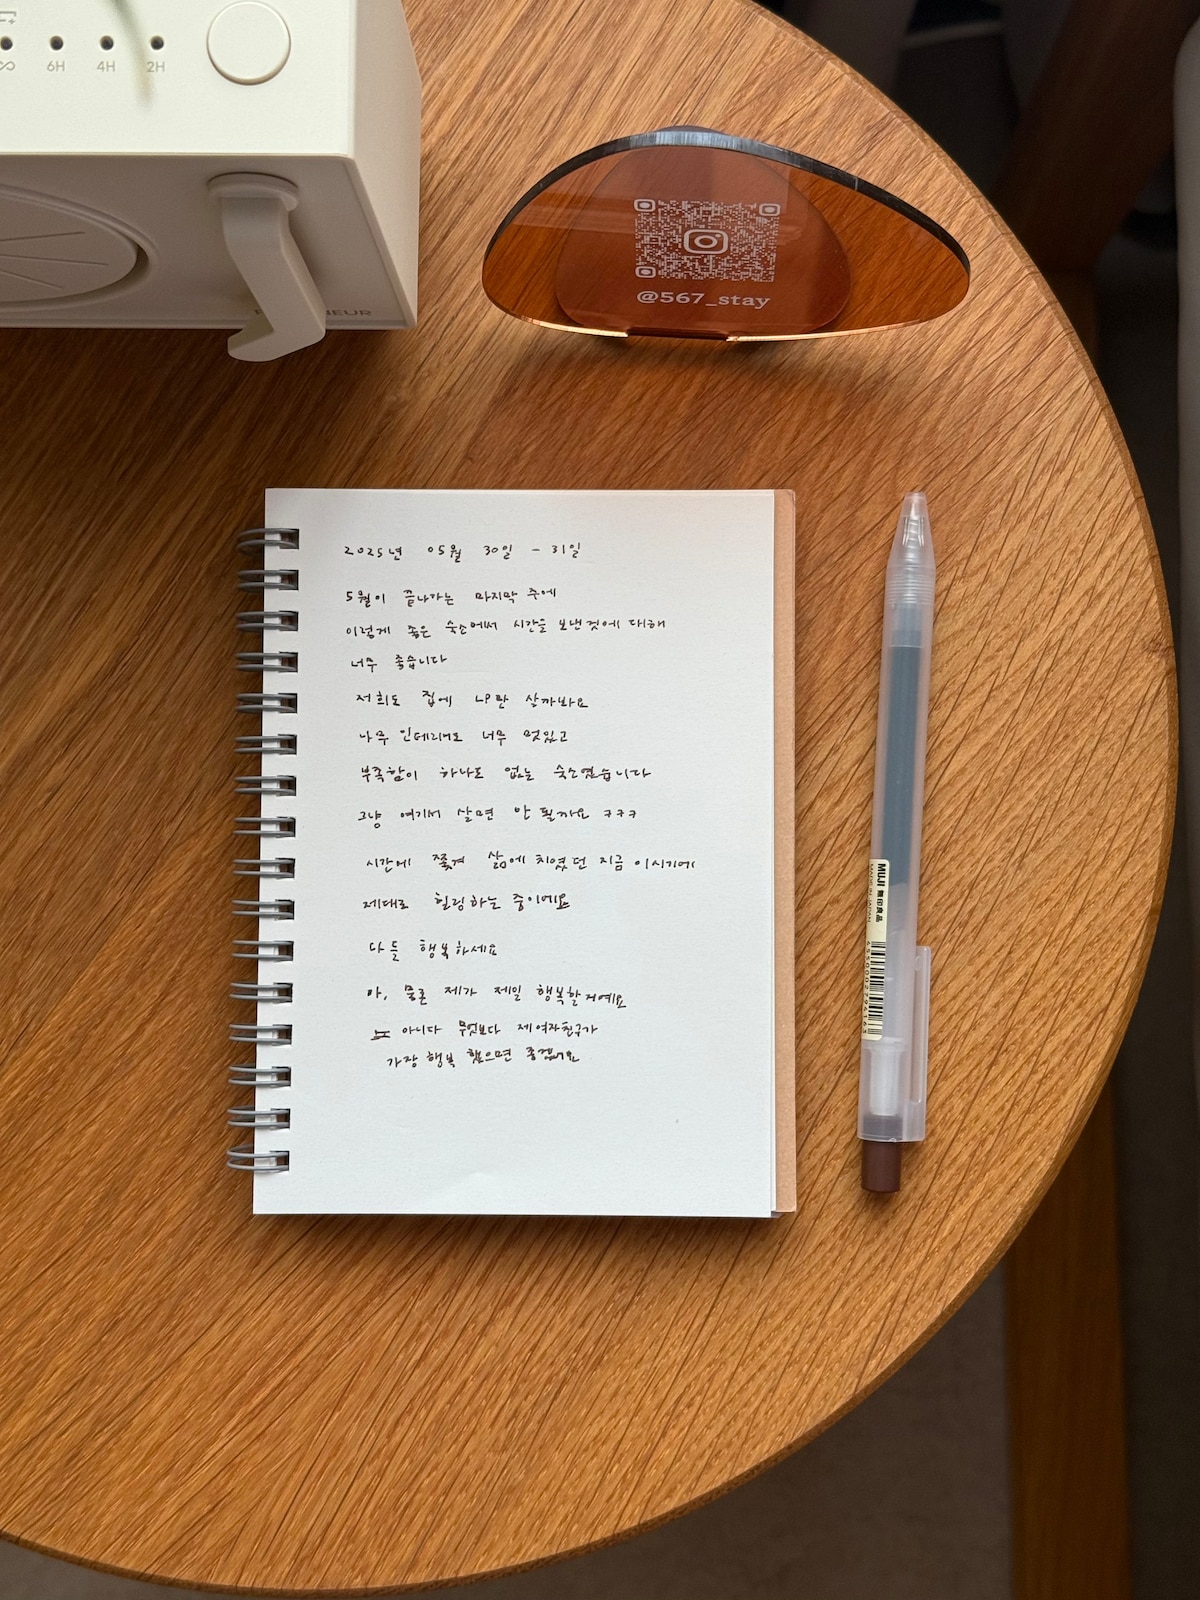 ∞ 6H 4H 2H
@567_stay
2025년 05월 30일 - 31일
5월이 끝나가는 마지막 주에
이렇게 좋은 숙소에서 시간을 보낸것에 대해
너무 좋습니다
저희도 집에 LP판 살까봐요
나무 인테리어도 너무 멋있고
부족함이 하나도 없는 숙소였습니다
그냥 여기서 살면 안 될까요 ㅋㅋㅋ
시간에 쫓겨 삶에 치였던 지금 이시기에
제대로 힐링하는 중이에요
다들 행복하세요
아, 물론 제가 제일 행복할거예요
아니다 무엇보다 제 여자친구가
가장 행복 했으면 좋겠어요
MUJI 無印良品
MADE IN JAPAN